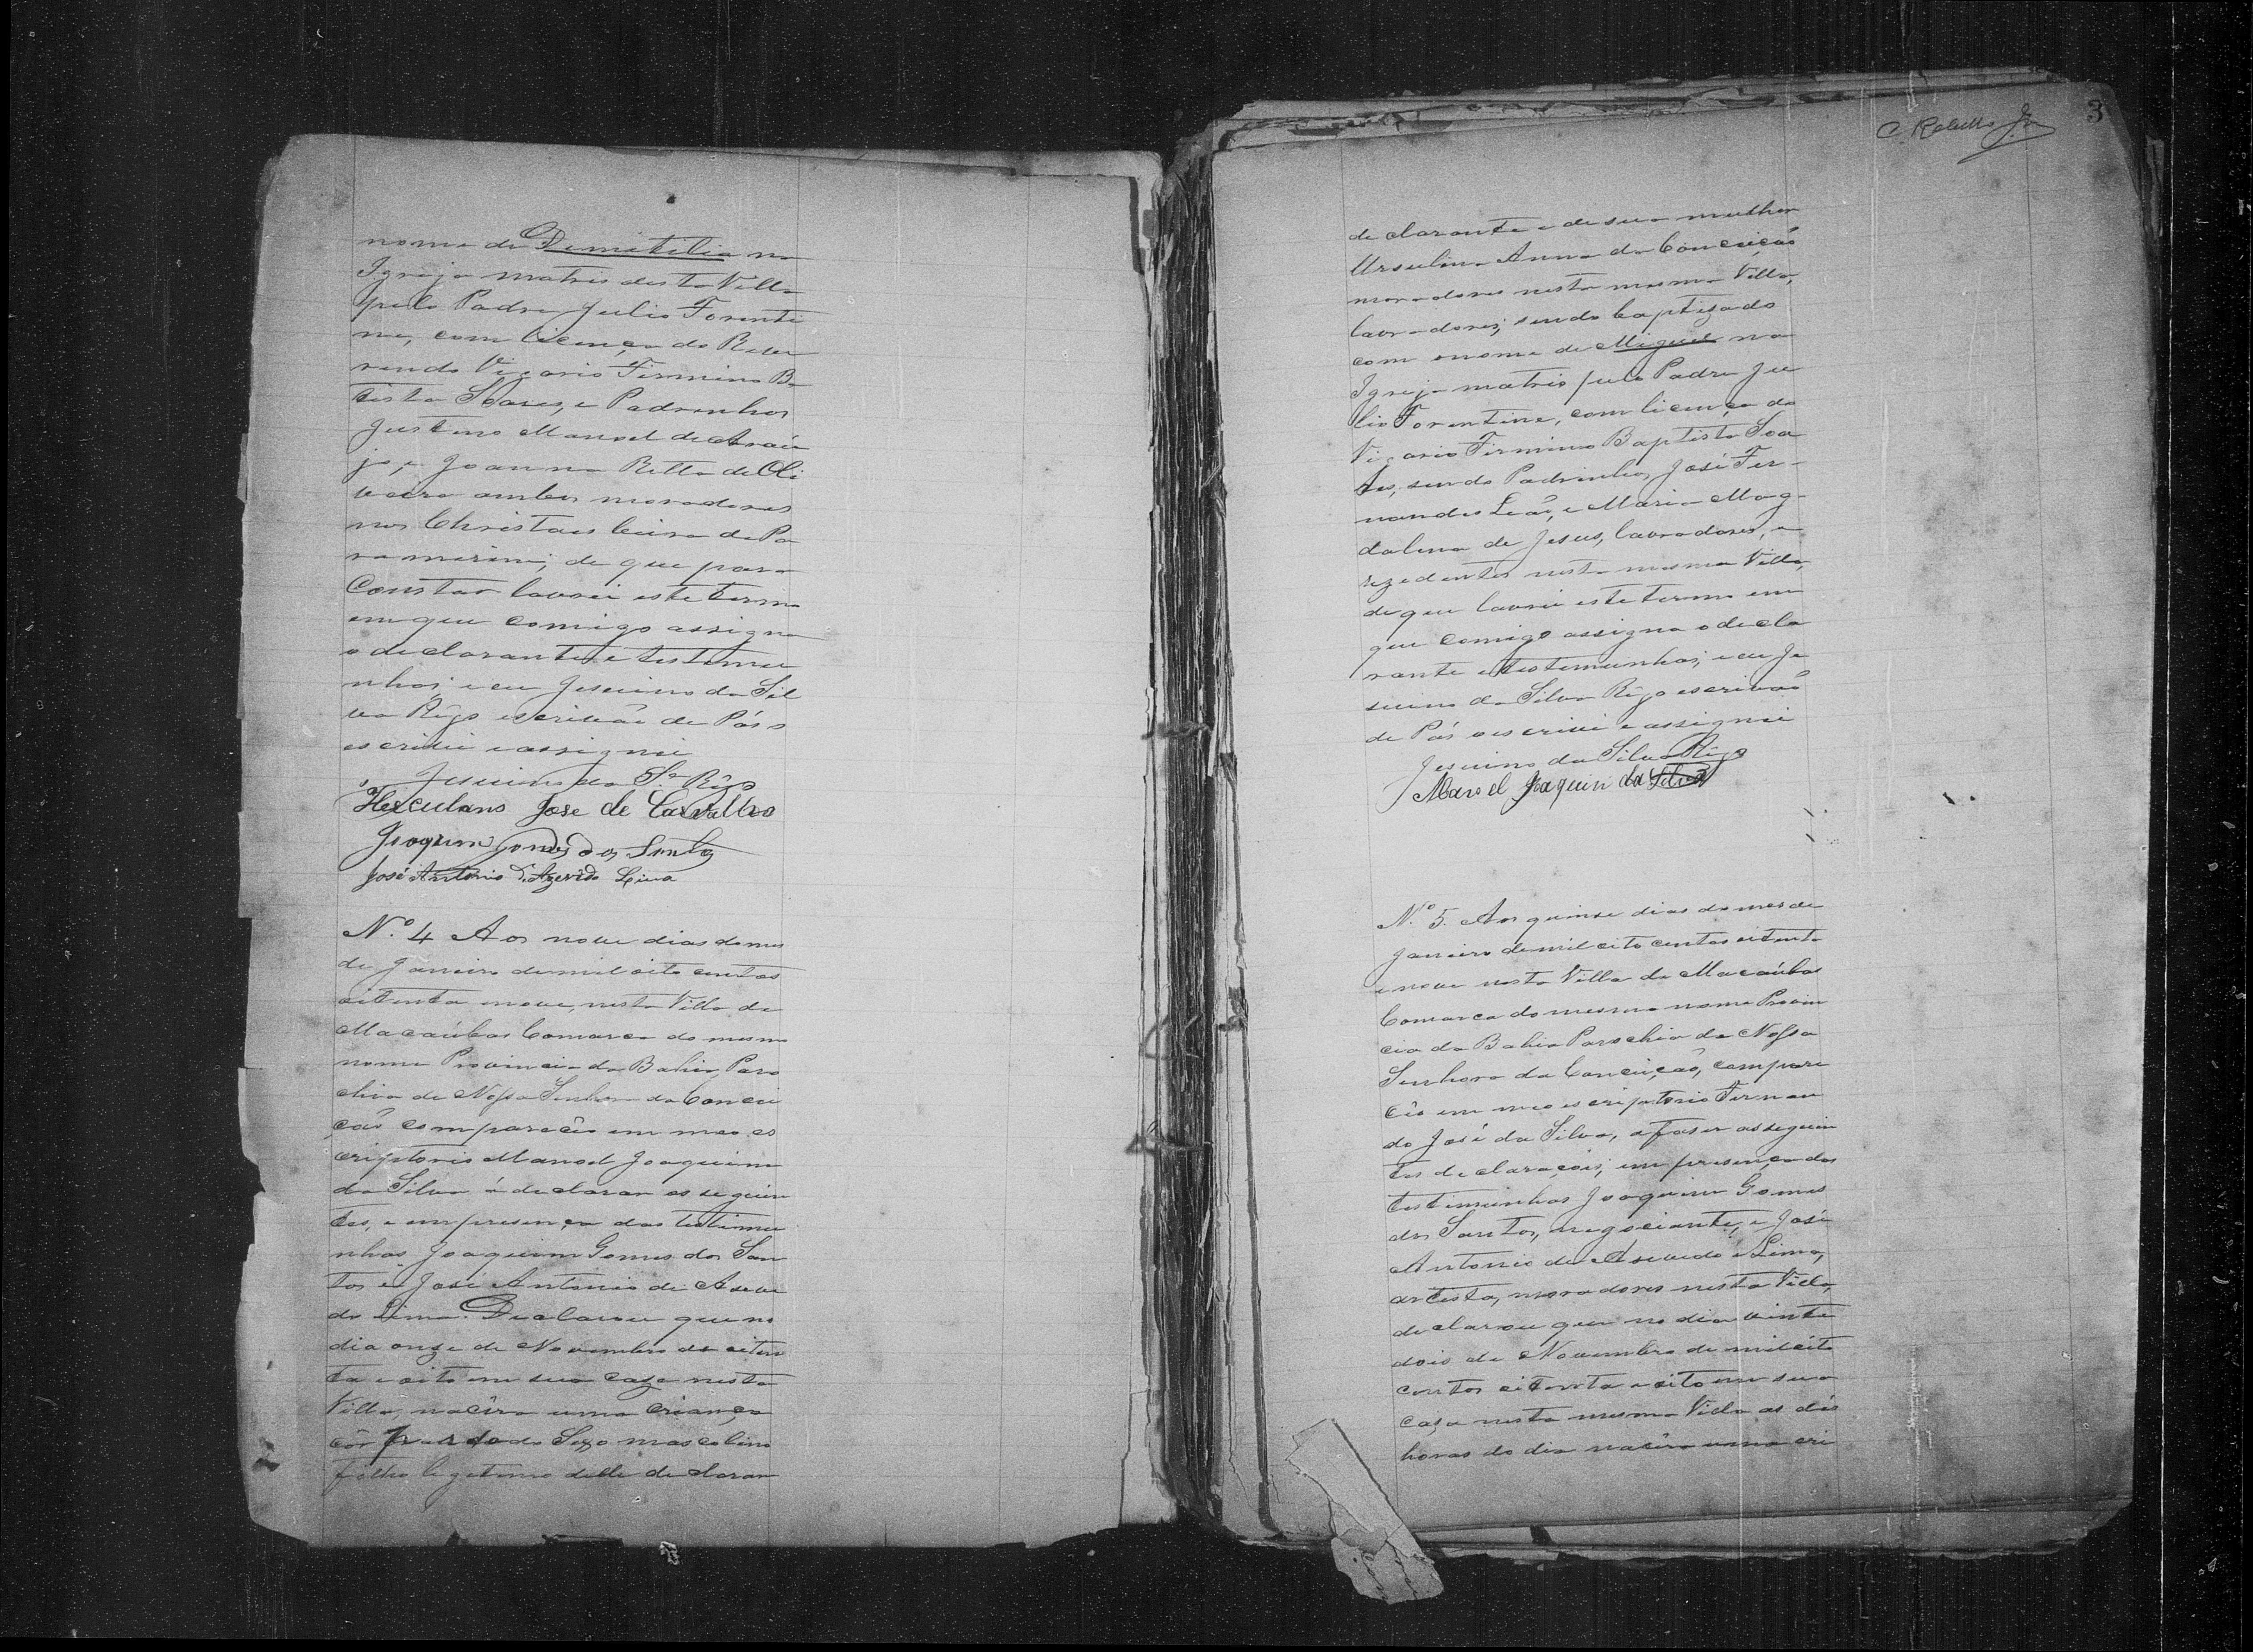 nome de Demitilia na
Igreja matris desta Villa
pelo Padre Julio Forenti
ne, com licença do Reve
rendo Vigario Firmino Ba
tista Soares, e Padrinhos
Justino Manoel de Araú
jo, e Joanna Ritta de Oli
veira ambos moradores
nos Christaes beira do Pa
ramirim; de que para
Constar lavrei este termo
em que comigo assigna
o declarante, e testemu
nhas; e eu Jesuino da Sil
va Rêgo escrivão de Pás o
escrivi e assignei
Jesuino da Sa. Rêgo
Herculano Jose de Carvalho
Joaquim Gomes dos Santos
José Antonio d'Azevedo Lima
No. 4 Aos nove dias do mes
de Janeiro de mil oito centos
oitenta e nove, nesta Villa de
Macaúbas Comarca do mesmo
nome Provincia da Bahia, Paro
chia de Nossa Senhora da Concei
ção comparecêo em meo es
criptorio Manoel Joaquim
da Silva á declarar os seguin
tes, e em presença das testimu
nhas Joaquim Gomes dos San
tos e José Antonio de Aseve
do Lima. Declarou que no
dia onze de Novembro de oiten
ta e oito em sua caza nesta
Villa, nacêra uma criança
côr Parda do Sexo mascolino
filho legetimo delle declaran
C. Rebello Jor
3
declarante e de sua mulher
Ursulina Anna da Conceição
moradores nesta mesma Villa,
lavradores; sendo baptizado
com o nome de Miguel na
Igreja matris pelo Padre Ju
lio Forentine, com licença do
Vigario Firmino Baptista Soa
res, sendo Padrinhos José Fer-
nandes Leão, e Maria Mag-
dalena de Jesus, lavradores, e
rezedentes nesta mesma Villa,
de que lavrei este termo em
que comigo assigna o decla
rante e testemunhas; e eu Je
suino da Silva Rêgo escrivão
de Pás o escrivi e assignei
Jesuino da Silva Rêgo
Manoel Joaquin da Silva
No. 5. Aos quinse dias do mes de
Janeiro de mil oito centos oitenta
e nove nesta Villa de Macaúbas
Comarca do mesmo nome Provin
cia da Bahia Parochia de Nossa
Senhora da Conceição, compare
cêo em meo escriptorio Fernan
do José da Silva, a faser as seguin
tes declarações; em presença das
testimunhas Joaquim Gomes
dos Santos, negociante, e José
Antonio de Asevedo e Lima,
artista, moradores nesta Villa,
declarou que no dia vinte
dois de Novembro de mil oito
centos oitenta e oito em sua
caza nesta mesma Villa as dés
horas do dia nacêra uma cri